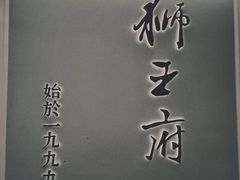 狮王府
始於一九九九